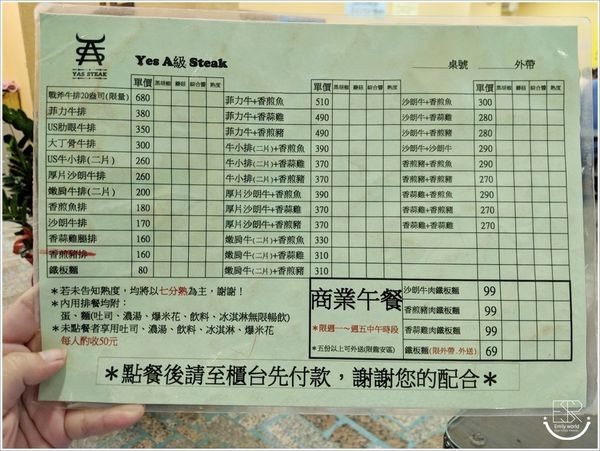 YAS STEAK
Yes A級 Steak
桌號 外帶
單價 黑胡椒 蘑菇 綜合醬 熟度
戰斧牛排20盎司(限量) 680
菲力牛排 380
US肋眼牛排 350
大丁骨牛排 300
US牛小排(二片) 260
厚片沙朗牛排 260
嫩肩牛排(二片) 200
香煎魚排 180
沙朗牛排 170
香蒜雞腿排 160
香煎豬排 160
鐵板麵 80
單價 黑胡椒 蘑菇 綜合醬 熟度
菲力牛+香煎魚 510
菲力牛+香蒜雞 490
菲力牛+香煎豬 490
牛小排(二片)+香煎魚 390
牛小排(二片)+香蒜雞 370
牛小排(二片)+香煎豬 370
厚片沙朗牛+香煎魚 390
厚片沙朗牛+香蒜雞 370
厚片沙朗牛+香煎豬 370
嫩肩牛(二片)+香煎魚 330
嫩肩牛(二片)+香蒜雞 310
嫩肩牛(二片)+香煎豬 310
單價 黑胡椒 蘑菇 綜合醬 熟度
沙朗牛+香煎魚 300
沙朗牛+香蒜雞 280
沙朗牛+香煎豬 280
沙朗牛+沙朗牛 290
香蒜雞+香煎魚 290
香煎豬+香煎魚 290
香煎豬+香煎豬 270
香蒜雞+香煎豬 270
香蒜雞+香蒜雞 270
*若未告知熟度，均將以七分熟為主，謝謝！
*內用排餐均附：
蛋、麵(吐司、濃湯、爆米花、飲料、冰淇淋無限暢飲)
*未點餐者享用吐司、濃湯、飲料、冰淇淋、爆米花
每人酌收50元
商業午餐
*限週一～週五中午時段
*五份以上可外送(限龍安區)
沙朗牛肉鐵板麵 99
香煎豬肉鐵板麵 99
香蒜雞肉鐵板麵 99
鐵板麵(限外帶.外送) 69
*點餐後請至櫃台先付款，謝謝您的配合*
Emily world